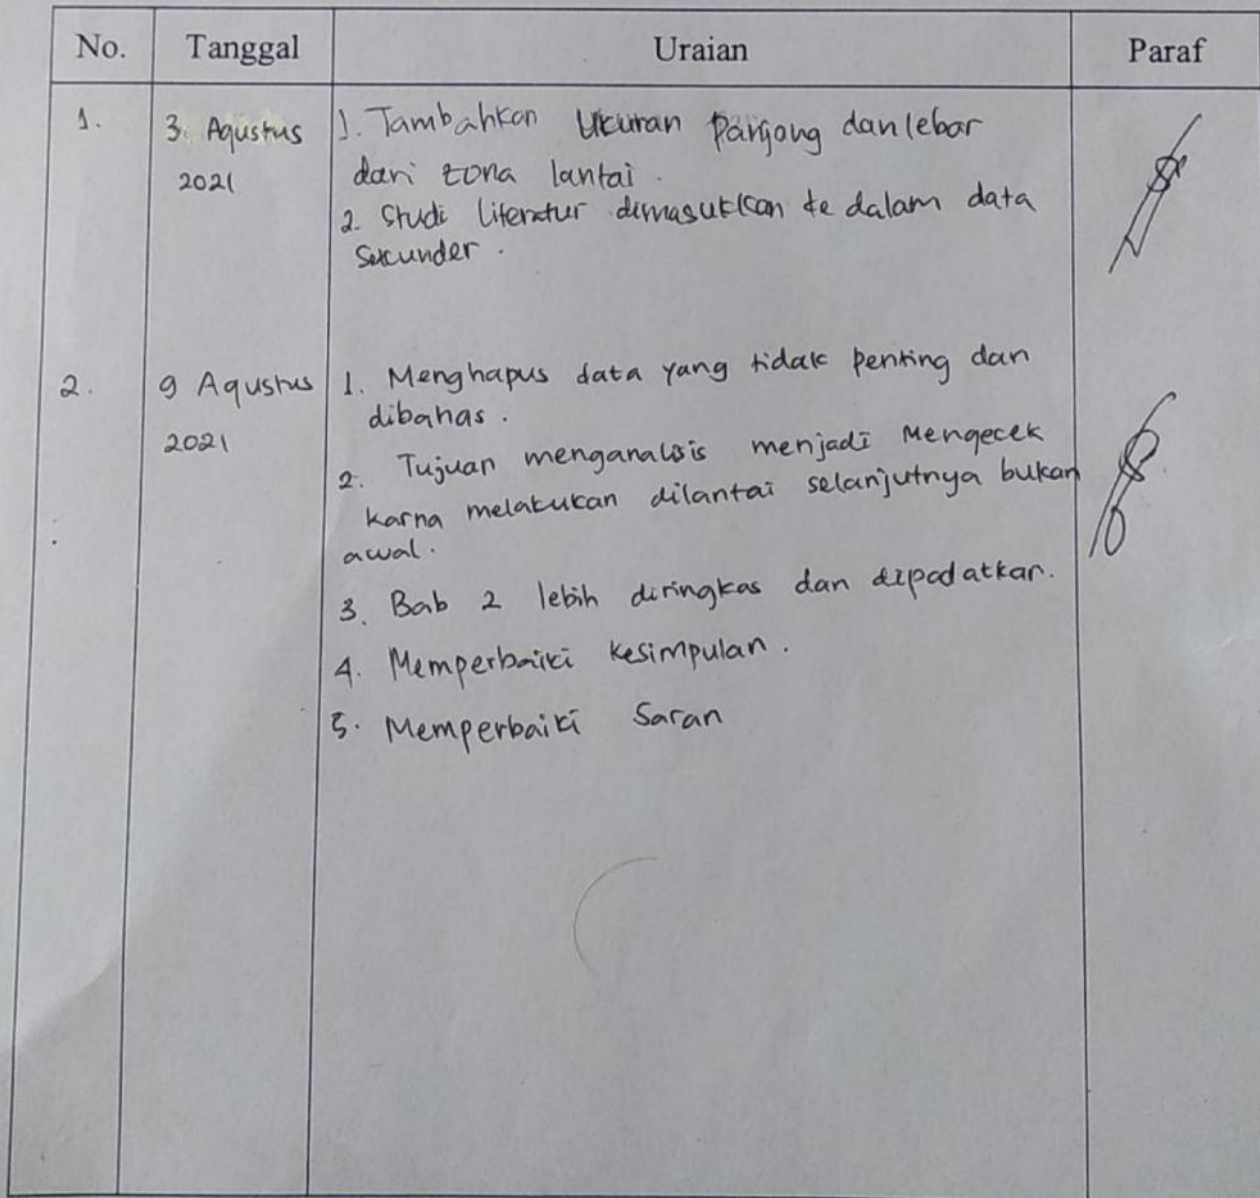 No. Tanggal Uraian Paraf
1. 3. Agustus 1. Tambahkan Ukuran Panjang dan lebar
2021 dari zona lantai.
2. Studi literatur dimasukkan ke dalam data
Sekunder.
2. 9 Agustus 1. Menghapus data yang tidak penting dan
2021 dibahas.
2. Tujuan menganalisis menjadi Mengecek
karna melakukan dilantai selanjutnya bukan
awal.
3. Bab 2 lebih diringkas dan dipadatkan.
4. Memperbaiki kesimpulan.
5. Memperbaiki Saran